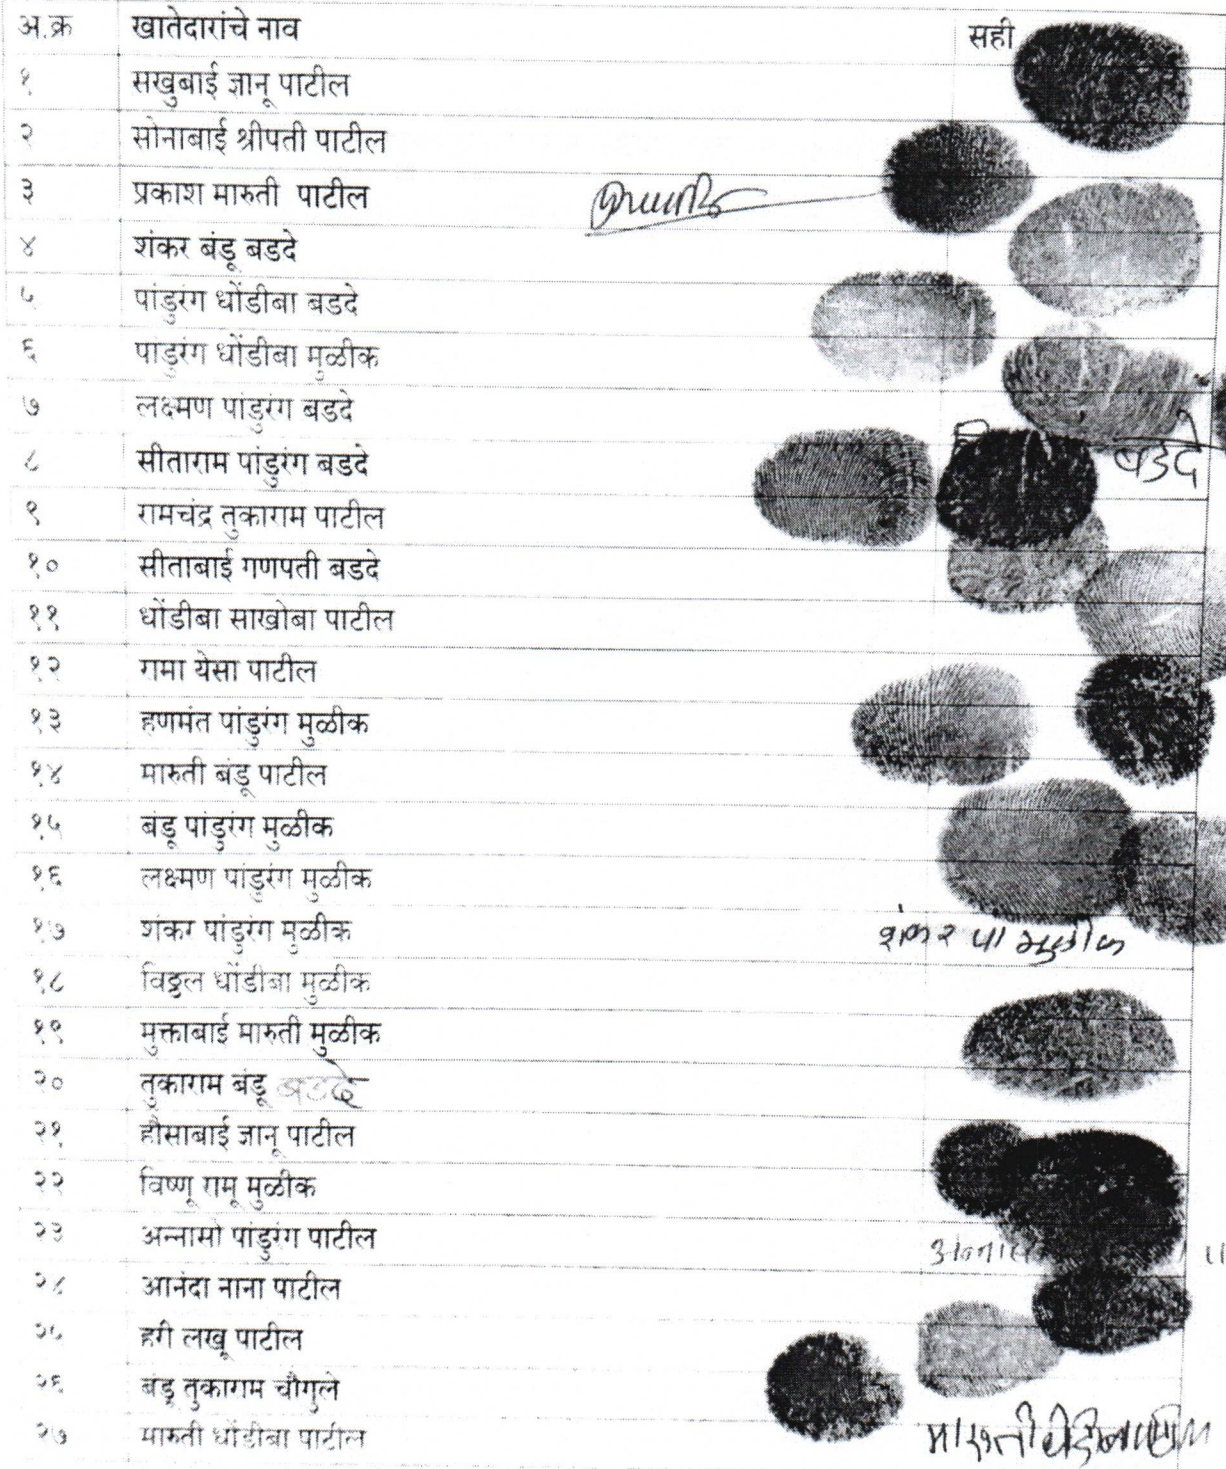 अ.क्र खातेदारांचे नाव सही
१ सखुबाई ज्ञानू पाटील
२ सोनाबाई श्रीपती पाटील
३ प्रकाश मारुती पाटील
४ शंकर बंडू बडदे
५ पांडुरंग धोंडीबा बडदे
६ पांडुरंग धोंडीबा मुळीक
७ लक्ष्मण पांडुरंग बडदे
८ सीताराम पांडुरंग बडदे बडदे
९ रामचंद्र तुकाराम पाटील
१० सीताबाई गणपती बडदे
११ धोंडीबा साखोबा पाटील
१२ गमा येसा पाटील
१३ हणमंत पांडुरंग मुळीक
१४ मारुती बंडू पाटील
१५ बंडू पांडुरंग मुळीक
१६ लक्ष्मण पांडुरंग मुळीक
१७ शंकर पांडुरंग मुळीक शंकर पां मुळीक
१८ विठ्ठल धोंडीबा मुळीक
१९ मुक्ताबाई मारुती मुळीक
२० तुकाराम बंडू बडदे
२१ हौसाबाई ज्ञानू पाटील
२२ विष्णू रामू मुळीक
२३ अन्नासो पांडुरंग पाटील
२४ आनंदा नाना पाटील
२५ हरी लखू पाटील
२६ बंडू तुकाराम चौगुले
२७ मारुती धोंडीबा पाटील मारुती धोंडीबा पाटील